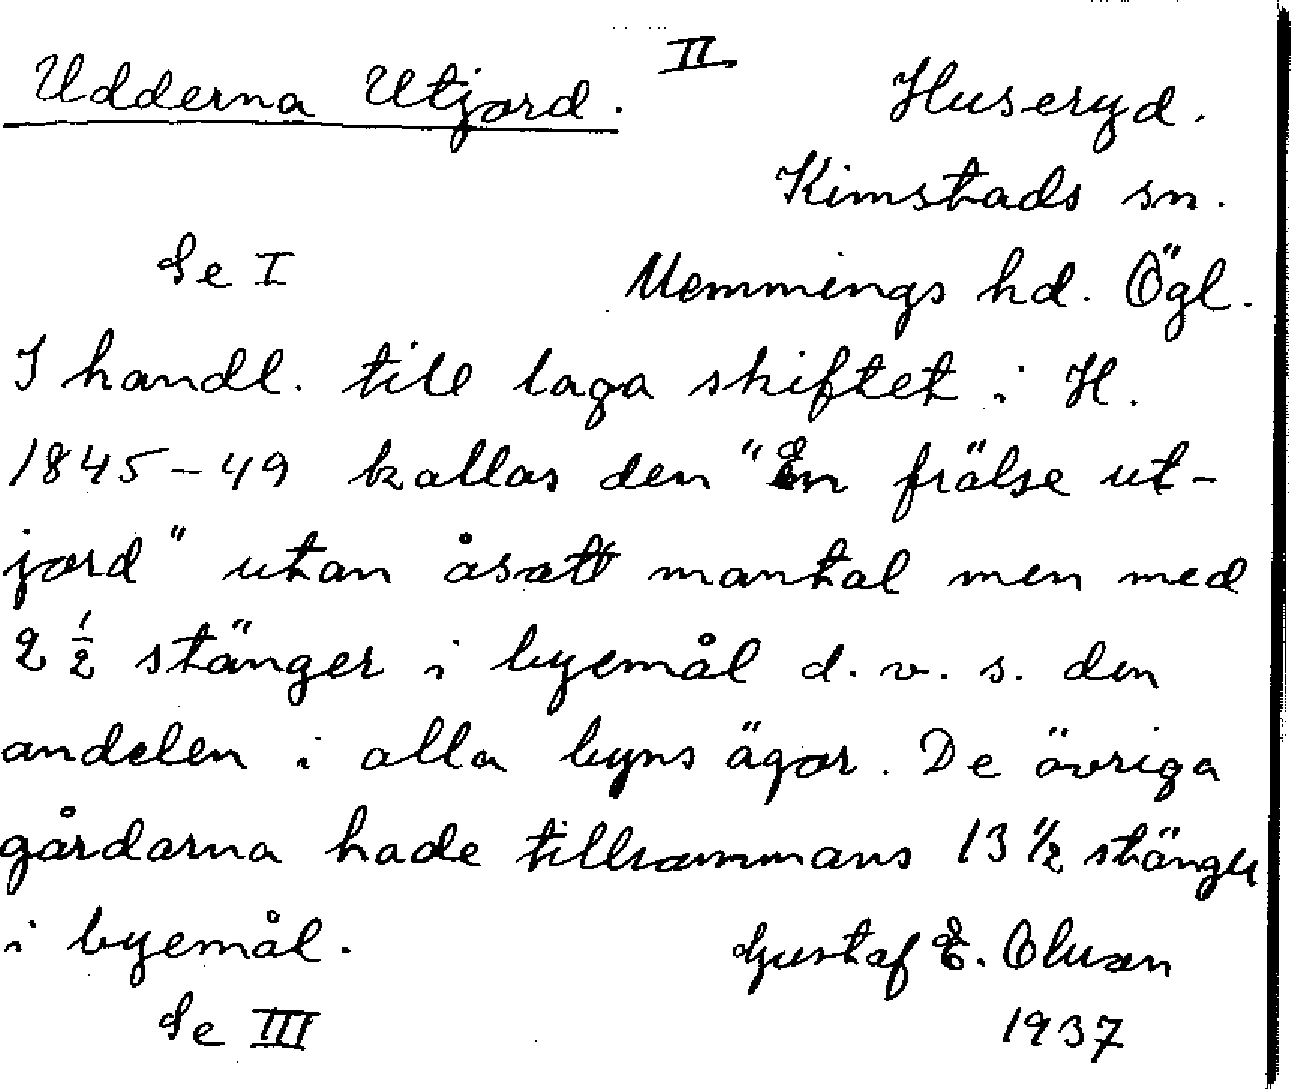 II
Udderna Utjord. Huseryd.
Kimstads sn.
Se I Memmings hd. Ögl.
I handl. till laga skiftet i H.
1845–49 kallas den "En frälse ut-
jord" utan åsatt mantal men med
2 1/2 stänger i byemål d. v. s. den
andelen i alla byns ägor. De övriga
gårdarna hade tillsammans 13 1/2 stänger
i byemål. Gustaf E. Olsson
Se III 1937